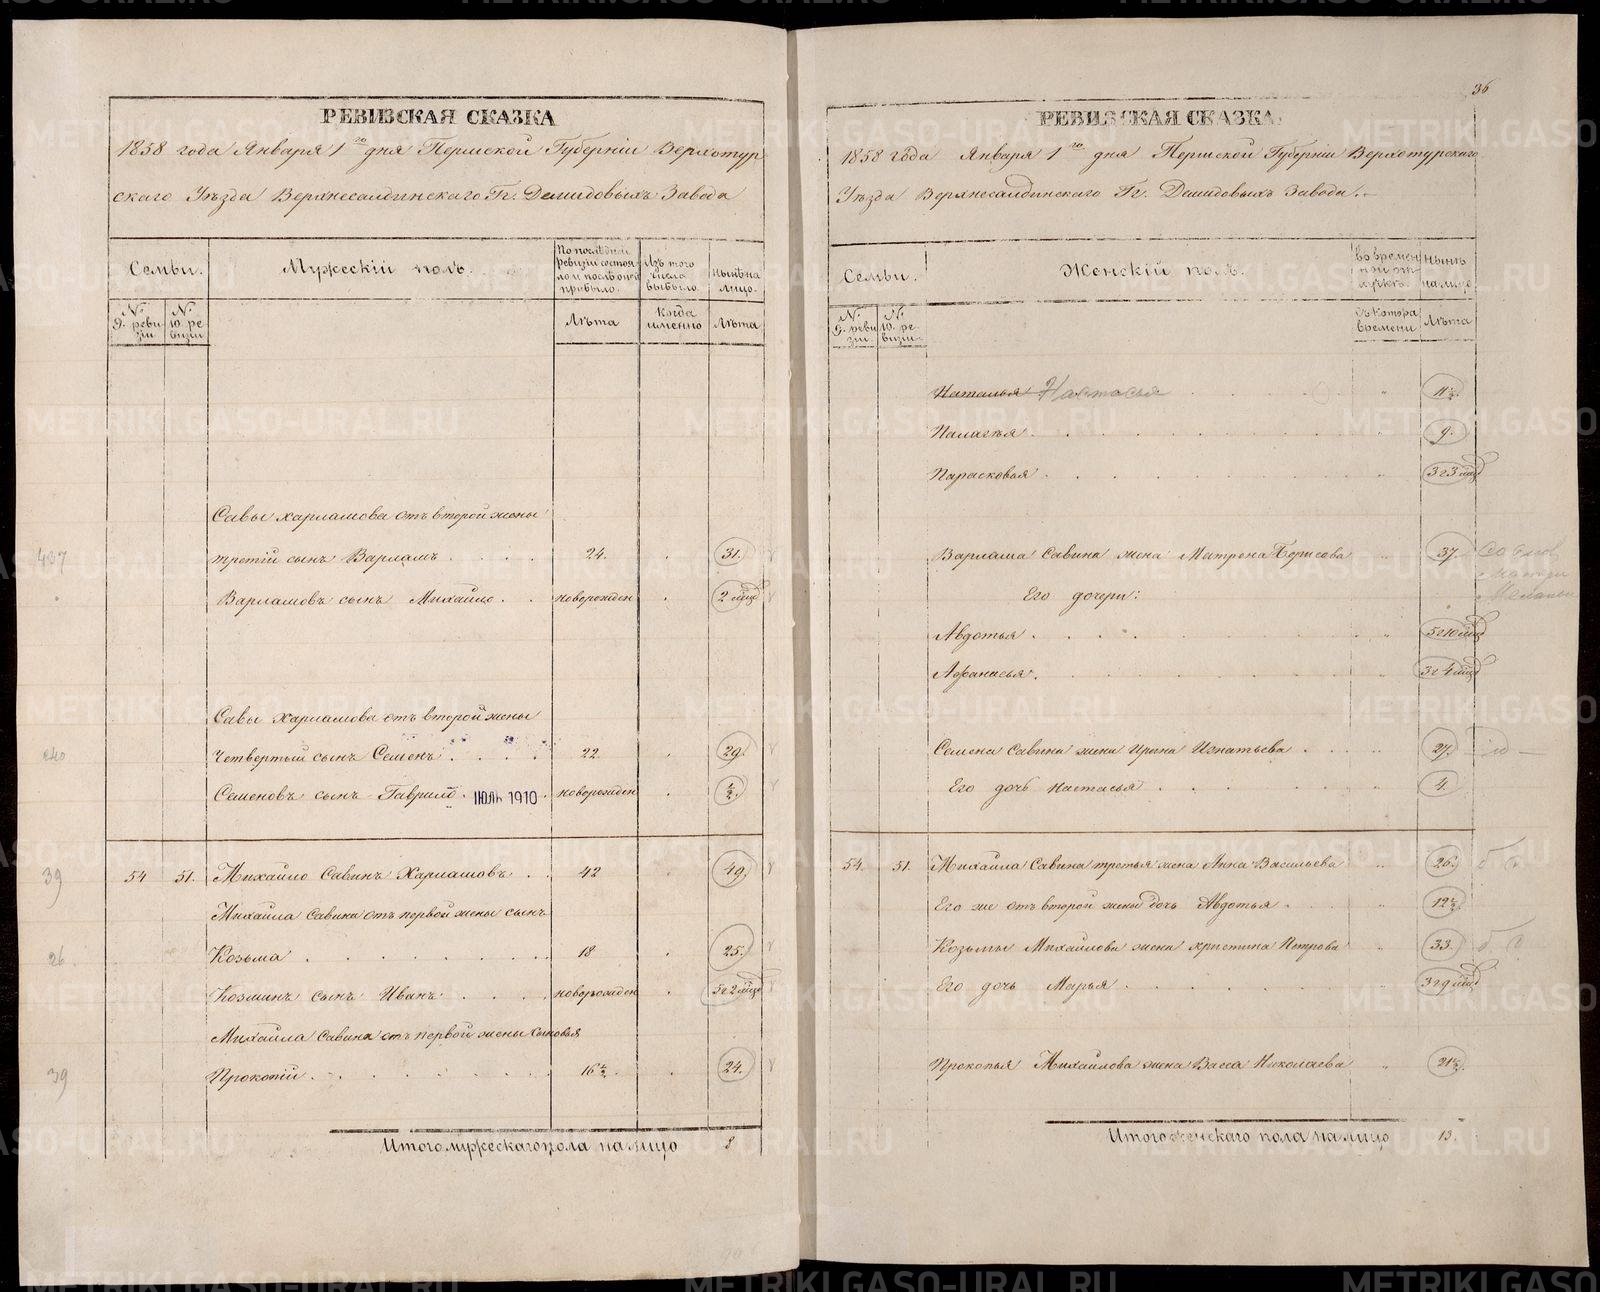 РЕВИЗСКАЯ СКАЗКА
1858 года Января 1го дня Пермской Губерніи Верхотур
скаго Уѣзда Верхнесалдинскаго Гг. Демидовыхъ Завода
Семьи.
Мужескій полъ.
По послѣдней
ревизіи состоя
ло и послѣ оной
прибыло.
Изъ того
числа
выбыло
Нынѣ на
лицо.
№
9. реви
зіи
№
10. ре
визіи
Лѣта
Когда
именно
Лѣта
Савы Харламова отъ второй жены
третій сынъ Варламъ . . . . 24. 31.
Варламовъ сынъ Михайло . . новорожден 2 мѣс
Савы Харламова отъ второй жены
Четвертый сынъ Семенъ . . . . 22. 29.
Семеновъ сынъ Гаврило . ІЮЛЬ 1910 . новорожден ½.
54 51. Михайло Савинъ Харламовъ . . 42 49.
Михайла Савина отъ первой жены сынъ
Козьма . . . . . . . . 18 25.
Козминъ сынъ Иванъ . . . . новорожден 5 г 2 мѣс
Михайла Савина отъ первой жены сыновья
Прокопій . . . . . . . . 16½. 24.
Итого мужескаго пола на лицо 8
39
26
39
36
РЕВИЗСКАЯ СКАЗКА
1858 года Января 1го дня Пермской Губерніи Верхотурскаго
Уѣзда Верхнесалдинскаго Гг. Демидовыхъ Завода.
Семьи.
Женскій полъ.
Во времен
ной от
лучкѣ
Нынѣ
на лицо
№
9. реви
зіи
№
10. ре
визіи
Съ котора
времени
Лѣта
Наталья Настасья 11½.
Палагѣя . . . . . . . 9.
Парасковья . . . . . . . 3 г 3 мѣс
Варлама Савина жена Матрена Борисова 37.
Его дочери:
Авдотья . . . . . . . 5 г 10 мѣс
Афанасья . . . . . . . 3 г 4 мѣс
Семена Савина жена Ирина Игнатьева . . . 27.
Его дочь Настасья . . . . . 4.
54. 51. Михайла Савина третья жена Анна Васильева 26.
Его же отъ второй жены дочь Авдотья . 12½.
Козьмы Михайлова жена Христина Петрова 33.
Его дочь Марья . . . . . . . 3 г 9 мѣс
Прокопья Михайлова жена Васса Николаева 21½.
Итого женскаго пола на лицо 13.
METRIKI.GASO-URAL.RU